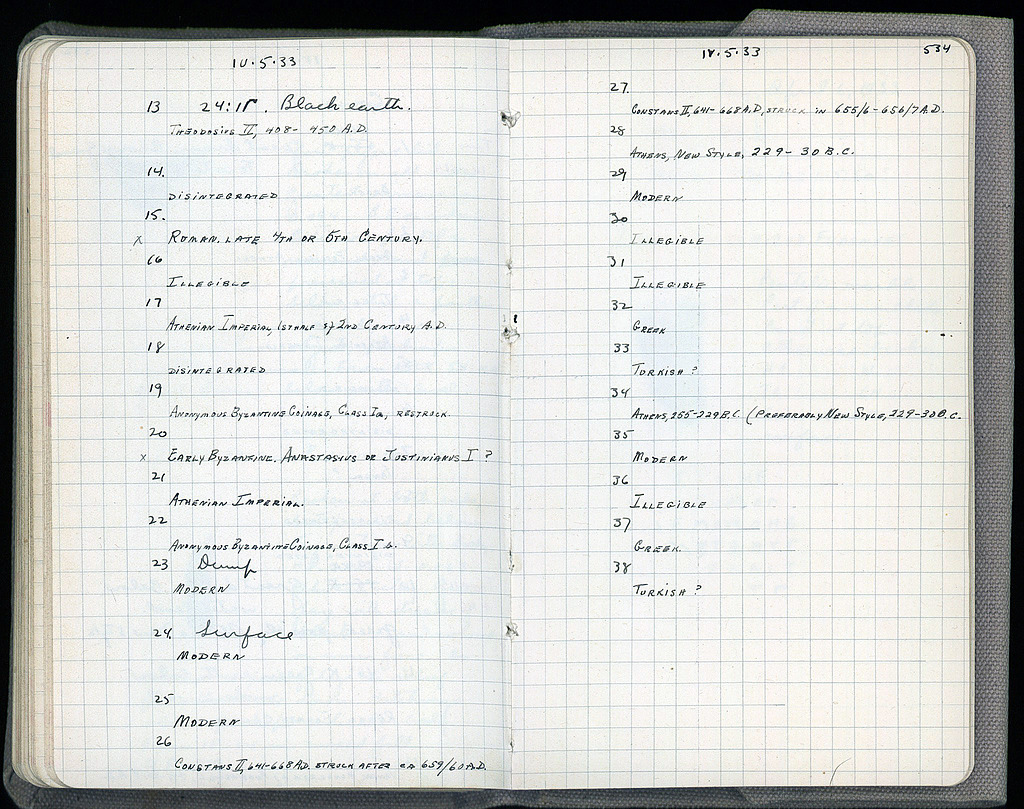 IV.5.33
13 24:ΙΓ. Black earth.
THEODOSIUS II, 408- 450 A.D.
14.
DISINTEGRATED
15.
x ROMAN. LATE 4TH OR 5TH CENTURY.
16
ILLEGIBLE
17
ATHENIAN IMPERIAL, 1STHALF of 2ND CENTURY A.D.
18
DISINTEGRATED
19
ANONYMOUS BYZANTINE COINAGE, CLASS Ia, RESTRUCK.
20
x EARLY BYZANTINE. ANASTASIUS OR JUSTINIANUS I ?
21
ATHENIAN IMPERIAL.
22
ANONYMOUS BYZANTINE COINAGE, CLASS I b.
23 Dump
MODERN
24. Surface
MODERN
25
MODERN
26
CONSTANS II, 641-668 A.D. STRUCK AFTER ca 659/60 A.D.
IV.5.33 534
27.
CONSTANS II, 641- 668 A.D, STRUCK IN 655/6-656/7 A.D.
28
ATHENS, NEW STYLE, 229- 30 B.C.
29
MODERN
30
ILLEGIBLE
31
ILLEGIBLE
32
GREEK
33
TURKISH ?
34
ATHENS, 255-229 B.C. (PREFERABLY NEW STYLE, 229-30 B.C.
35
MODERN
36
ILLEGIBLE
37
GREEK.
38
TURKISH ?